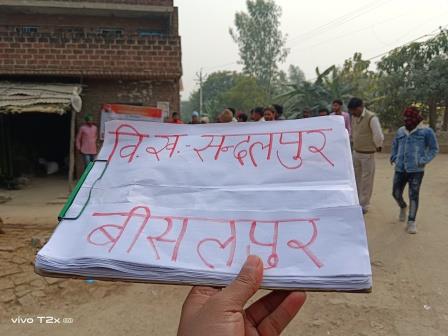 वि.ख.-सन्दलपुर
बीसलपुर
vivo T2x